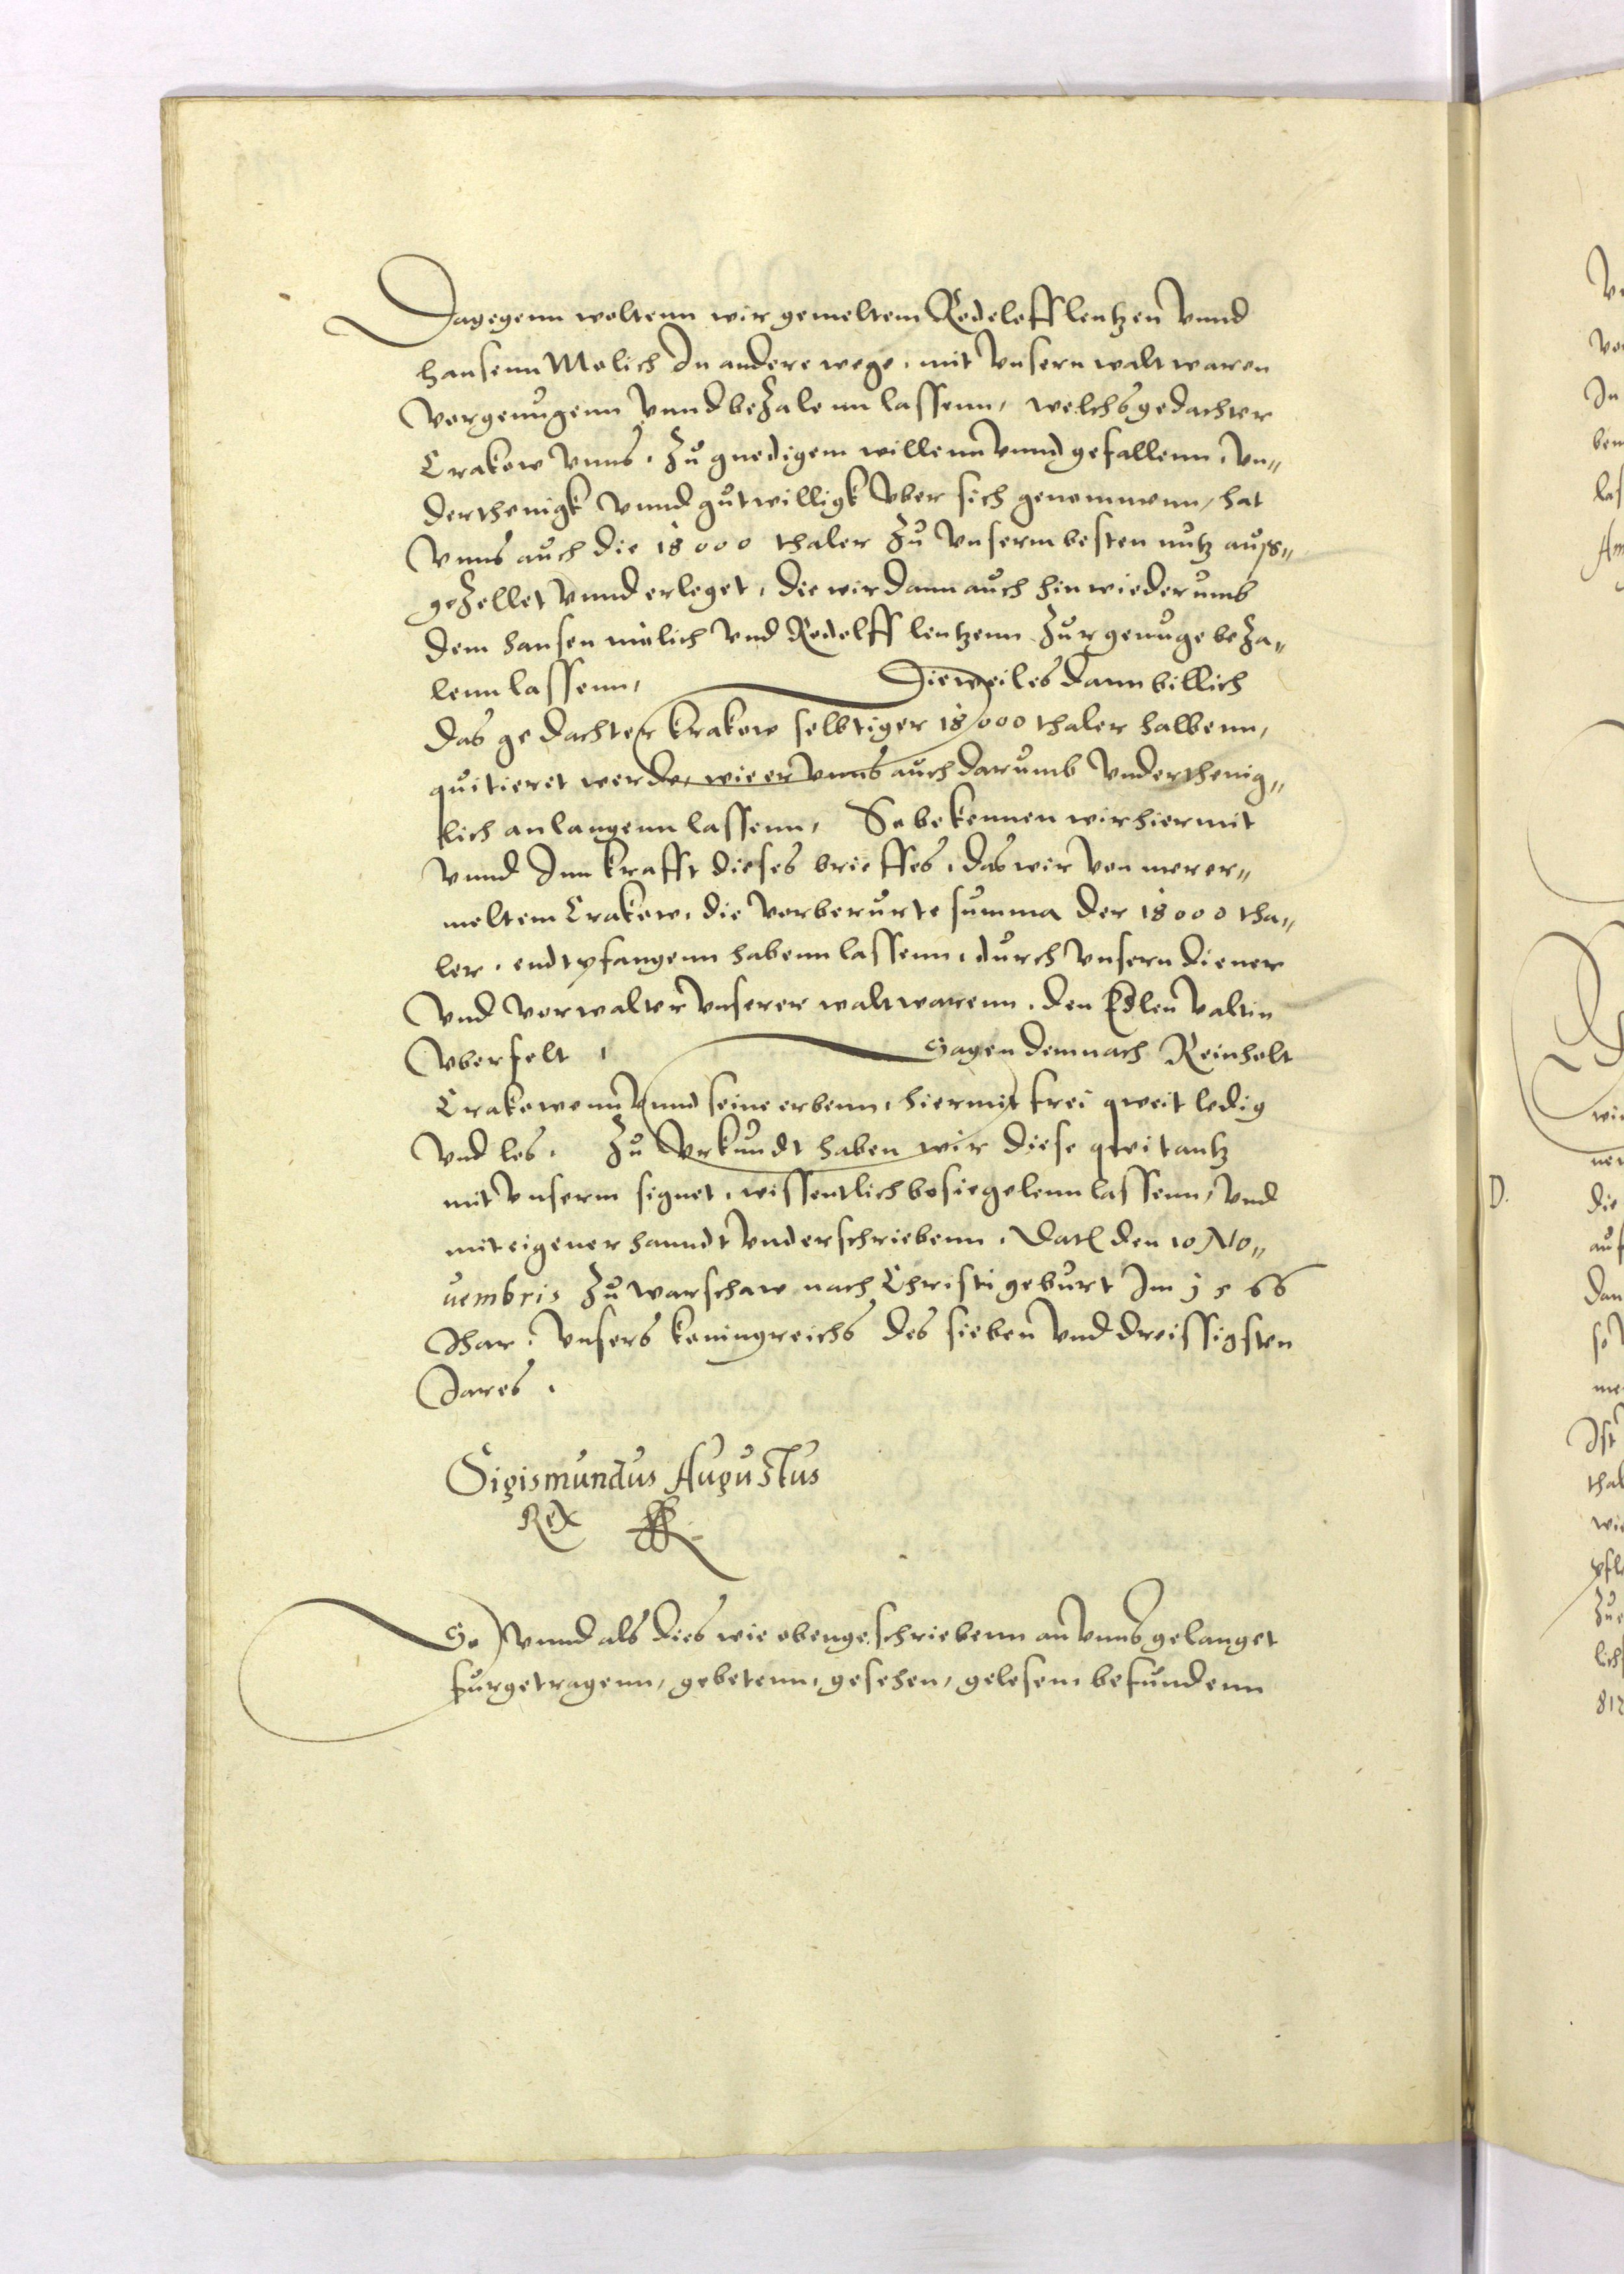 Dagegenn woltenn wir gemeltem Rodeloff lentzen vnnd
hansenn Molich In andere wege, mit vnsern walt waren
vorgenugenn vnnd bezalenn lassenn, welchs gedachter
Crakow vnns, zu gnedigem willenn vnnd gefallenn, vn„
derthenigk vnnd gutwilligk vber sich genommenn, hat
vnns auch die 18000 thaler zu vnserm besten nutz auss„
gezellet vnnd erleget, die wir dann auch hinwiederumb
dem hansen molich vnd Rodolff lentzenn zur genuge beza„
lenn lassenn, Dieweil es dann billich
das gedachter krakow selbtiger 18000 thaler halbenn,
quitieret werde, wie er vnns auch darumb vnderthenig„
klich anlangenn lassenn, So bekennen wir hiermit
vnnd Inn krafft dieses brieffes, das wir von merer„
meltem Crakow, die vorberurte summa der 18000 tha„
ler, endtpfangenn habenn lassenn, durch vnsern diener
vnd vorwalter vnserer waltwarenn, den Edlen valtin
vberfelt, Sagen demnach Reinholt
Crakowenn vnnd seine erbenn, hiermit frei queit ledig
vnd los. Zu vrkundt haben wir diese queitantz
mit vnserm signet, wissentlich besiegelenn lassenn, vnd
mit eigener hanndt vnderschriebenn. Dat den 10 No„
uembris zu warschaw nach Christi geburt Im 1566
Ihar, vnsers koningreichs des sieben vnd dreissigsten
Jares.
Sigismundus Augustus
Rex
So vnnd als dies wie obengeschriebenn an vnns gelanget
furgetragenn, gebetenn, gesehen, gelesenn befundenn
D.